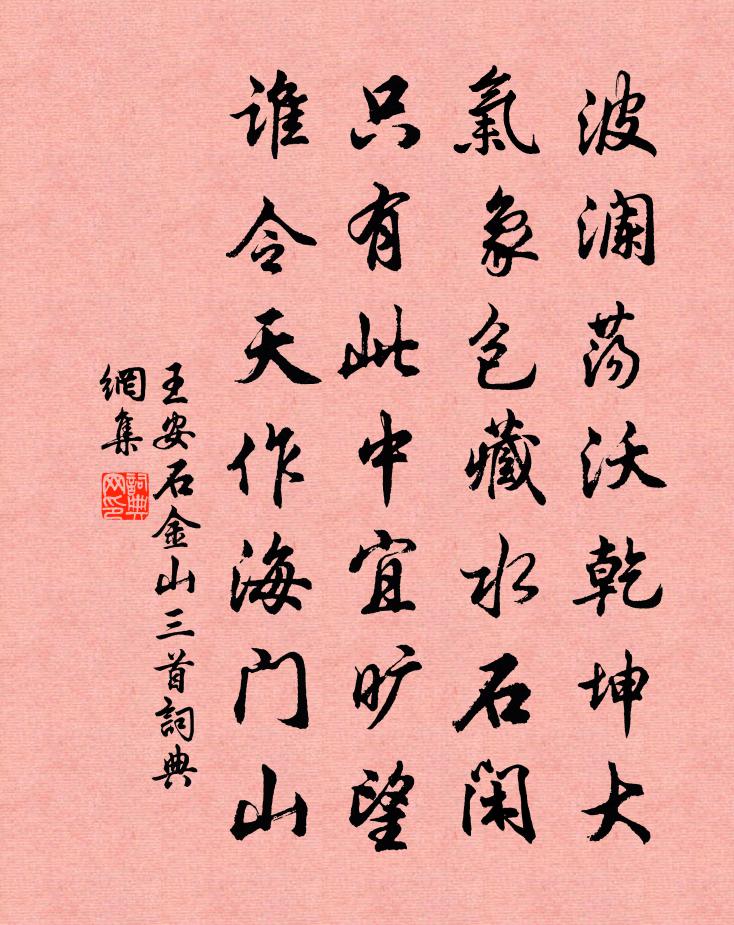 波澜荡沃乾坤大
氣象包藏水石闲
只有此中宜旷望
谁令天作海门山
王安石金山三首詞典
網集
詞典
网印